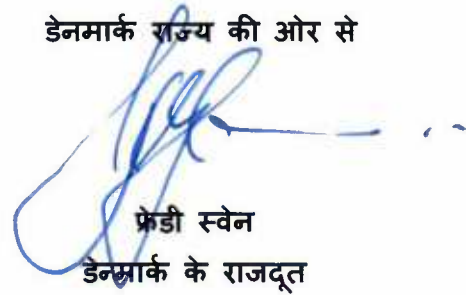 डेनमार्क राज्य की ओर से
फ्रेडी स्वेन
डेन्मार्क के राजदूत